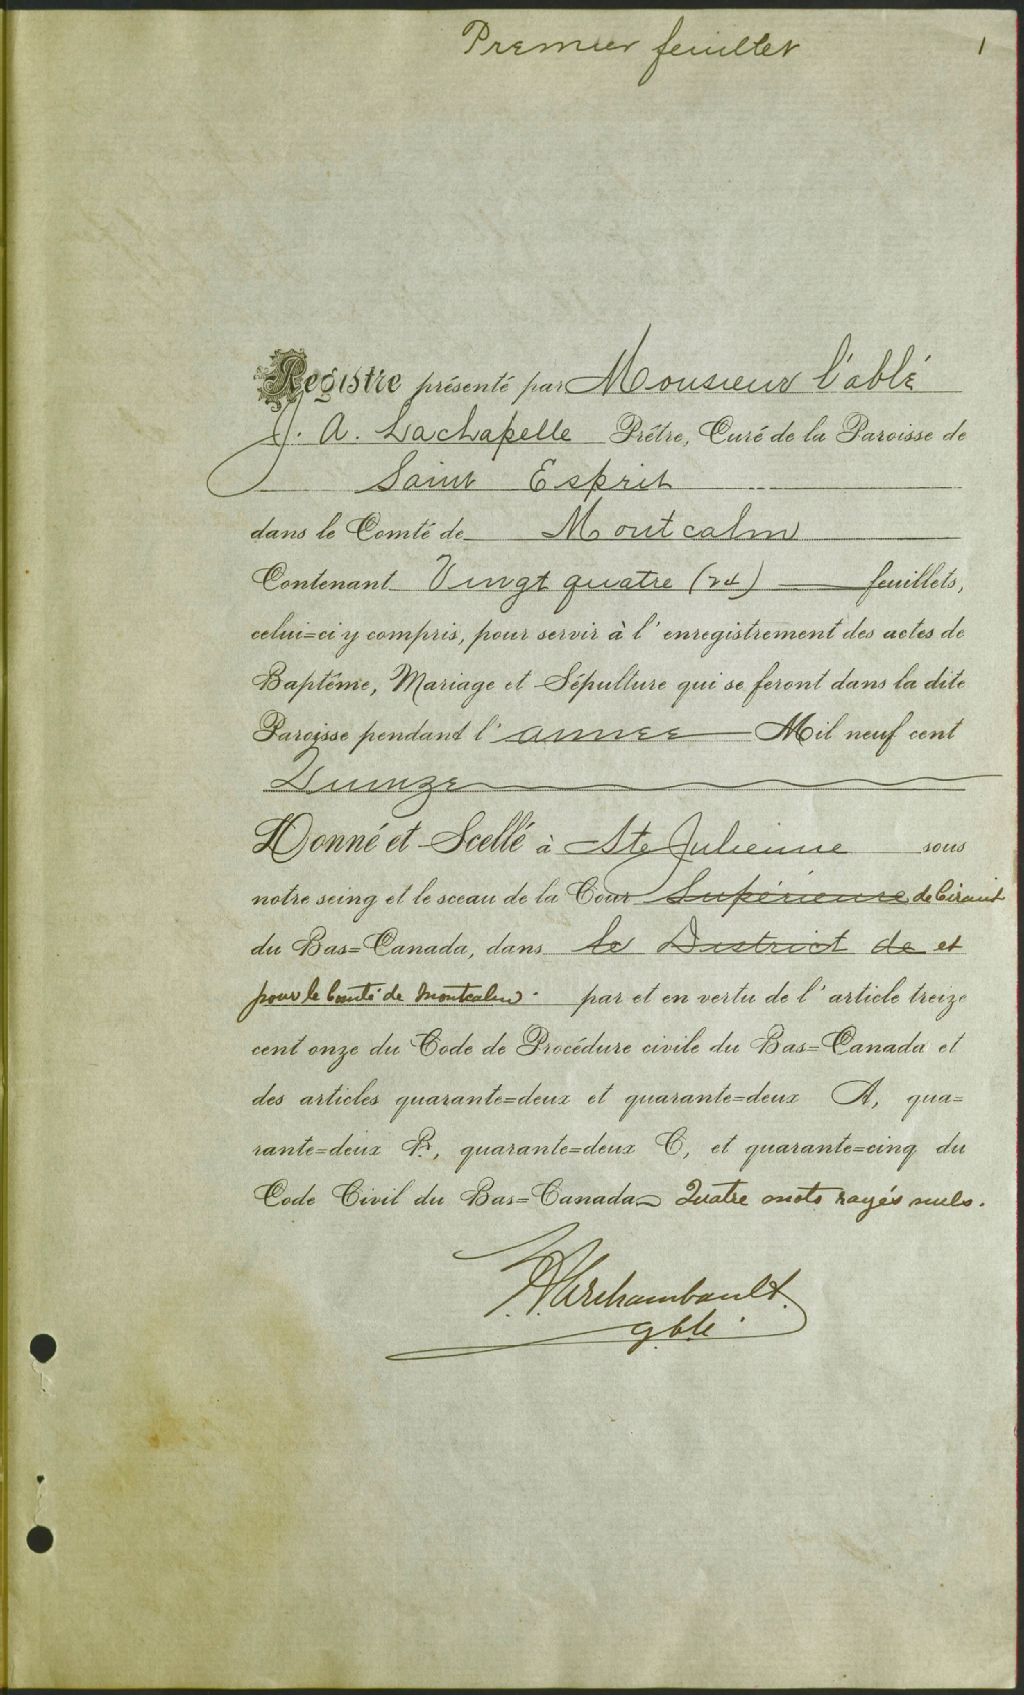 Premier feuillet 1
Registre présenté par Monsieur l'abbé
J. A. Lachapelle Prêtre, Curé de la Paroisse de
Saint Esprit
dans le Comté de Montcalm
Contenant Vingt quatre (24) feuillets,
celui=ci y compris, pour servir à l'enregistrement des actes de
Baptême, Mariage et Sépulture qui se feront dans la dite
Paroisse pendant l'année Mil neuf cent
Quinze
Donné et Scellé à Ste Julienne sous
notre seing et le sceau de la Cour Supérieure de Circuit
du Bas=Canada, dans le District de et
pour le Comté de Montcalm. par et en vertu de l'article treize
cent onze du Code de Procédure civile du Bas=Canada et
des articles quarante=deux et quarante=deux A, qua=
rante=deux B, quarante=deux C, et quarante=cinq du
Code Civil du Bas=Canada Quatre mots rayés nuls.
Archambault.